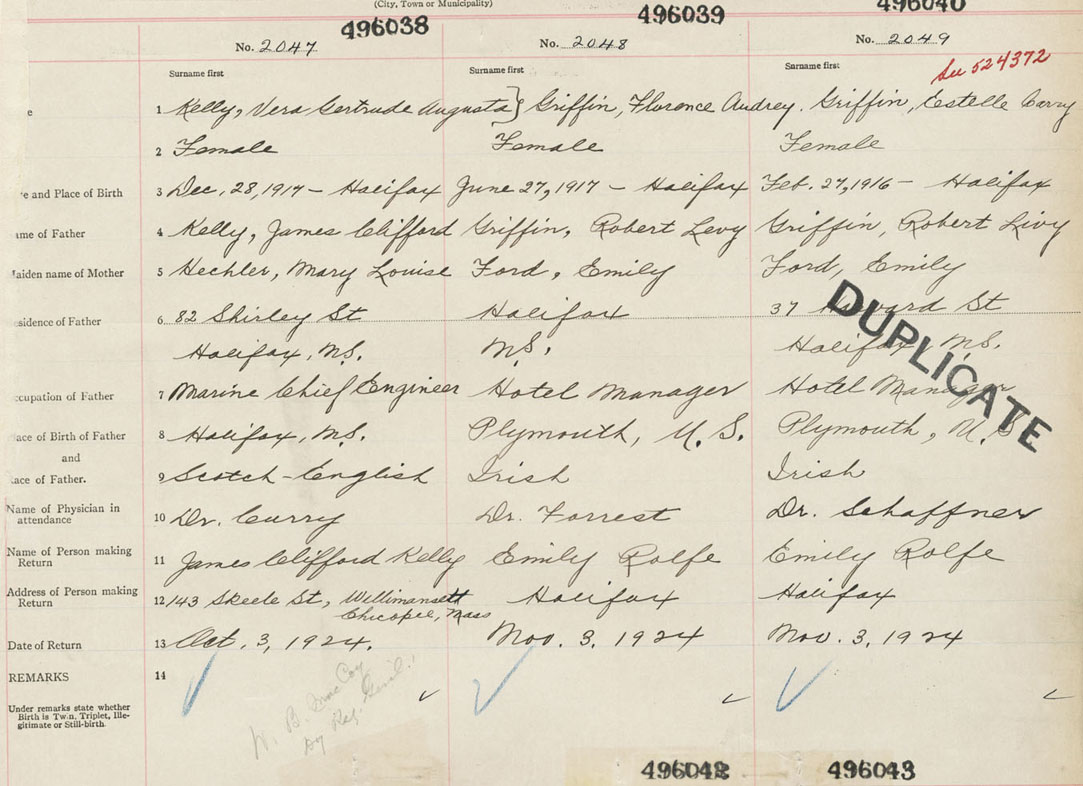 (City, Town or Municipality)
496038 496039 496040
No. 2047 No. 2048 No. 2049
See 524372
Surname first Surname first Surname first
e 1 Kelly, Vera Gertrude Augusta } Griffin, Florence Audrey. Griffin, Estelle
2 Female Female Female
e and Place of Birth 3 Dec. 28, 1917 – Halifax June 27, 1917 – Halifax Feb. 27, 1916 – Halifax
ame of Father 4 Kelly, James Clifford Griffin, Robert Levy Griffin, Robert Livy
Maiden name of Mother 5 Hechler, Mary Louise Ford, Emily Ford, Emily
esidence of Father 6 82 Shirley St Halifax 37 St
Halifax, N.S. N.S. Halifax, N.S.
DUPLICATE
ccupation of Father 7 Marine Chief Engineer Hotel Manager Hotel Manager
lace of Birth of Father 8 Halifax, N.S. Plymouth, U.S. Plymouth, U.S
and
ace of Father. 9 Scotch-English Irish Irish
Name of Physician in
attendance 10 Dr. Curry Dr. Forrest Dr. Schaffner
Name of Person making
Return 11 James Clifford Kelly Emily Rolfe Emily Rolfe
Address of Person making
Return 12 143 Skeele St, Willimansett Halifax Halifax
Chicopee, Mass
Date of Return 13 Oct. 3, 1924. Nov. 3, 1924 Nov. 3, 1924
REMARKS 14
Under remarks state whether
Birth is Twin, Triplet, Ille-
gitimate or Still-birth.
W. B.
Reg. Gen'l.
496042 496043